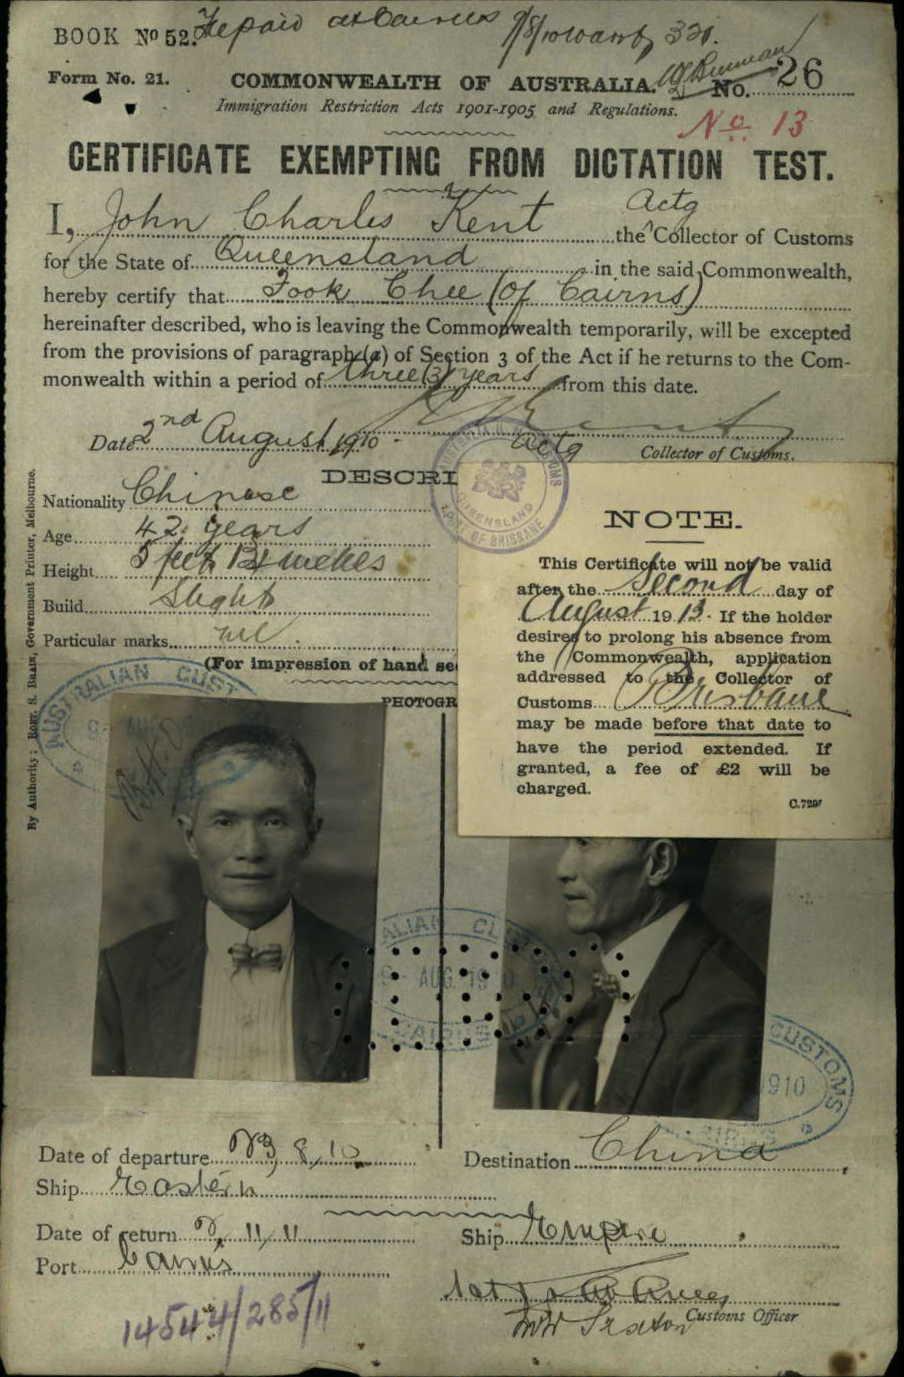 BOOK No 52.
at Cairns 9/8/10
Form No. 21.
COMMONWEALTH OF AUSTRALIA.
No. 26
Immigration Restriction Acts 1901-1905 and Regulations.
No 13
CERTIFICATE EXEMPTING FROM DICTATION TEST.
I, John Charles Kent the Actg Collector of Customs
for the State of Queensland in the said Commonwealth,
hereby certify that Fook Chee (of Cairns)
hereinafter described, who is leaving the Commonwealth temporarily, will be excepted
from the provisions of paragraph (a) of Section 3 of the Act if he returns to the Com-
monwealth within a period of three (3) years from this date.
Date 2nd August 1910
Actg Collector of Customs.
DESCRI
Nationality Chinese
Age 42 years
Height 5 feet inches
Build Slight
Particular marks nil.
(For impression of hand se
PHOTOGR
NOTE.
This Certificate will not be valid
after the Second day of
August 1913. If the holder
desires to prolong his absence from
the Commonwealth, application
addressed to the Collector of
Customs Brisbane
may be made before that date to
have the period extended. If
granted, a fee of £2 will be
charged.
C.7291
QUEENSLAND
OF BRISBANE
By Authority; ROBT. S. BRAIN, Government Printer, Melbourne.
AUSTRALIAN CUST
ALIAN CU
AUG 1910
CAIRNS
CUSTOMS
1910
Date of departure 8.10
Destination China
Ship Eastern
Date of return 11/11
Ship Empire
Port Cairns
Customs Officer
14544/285/11